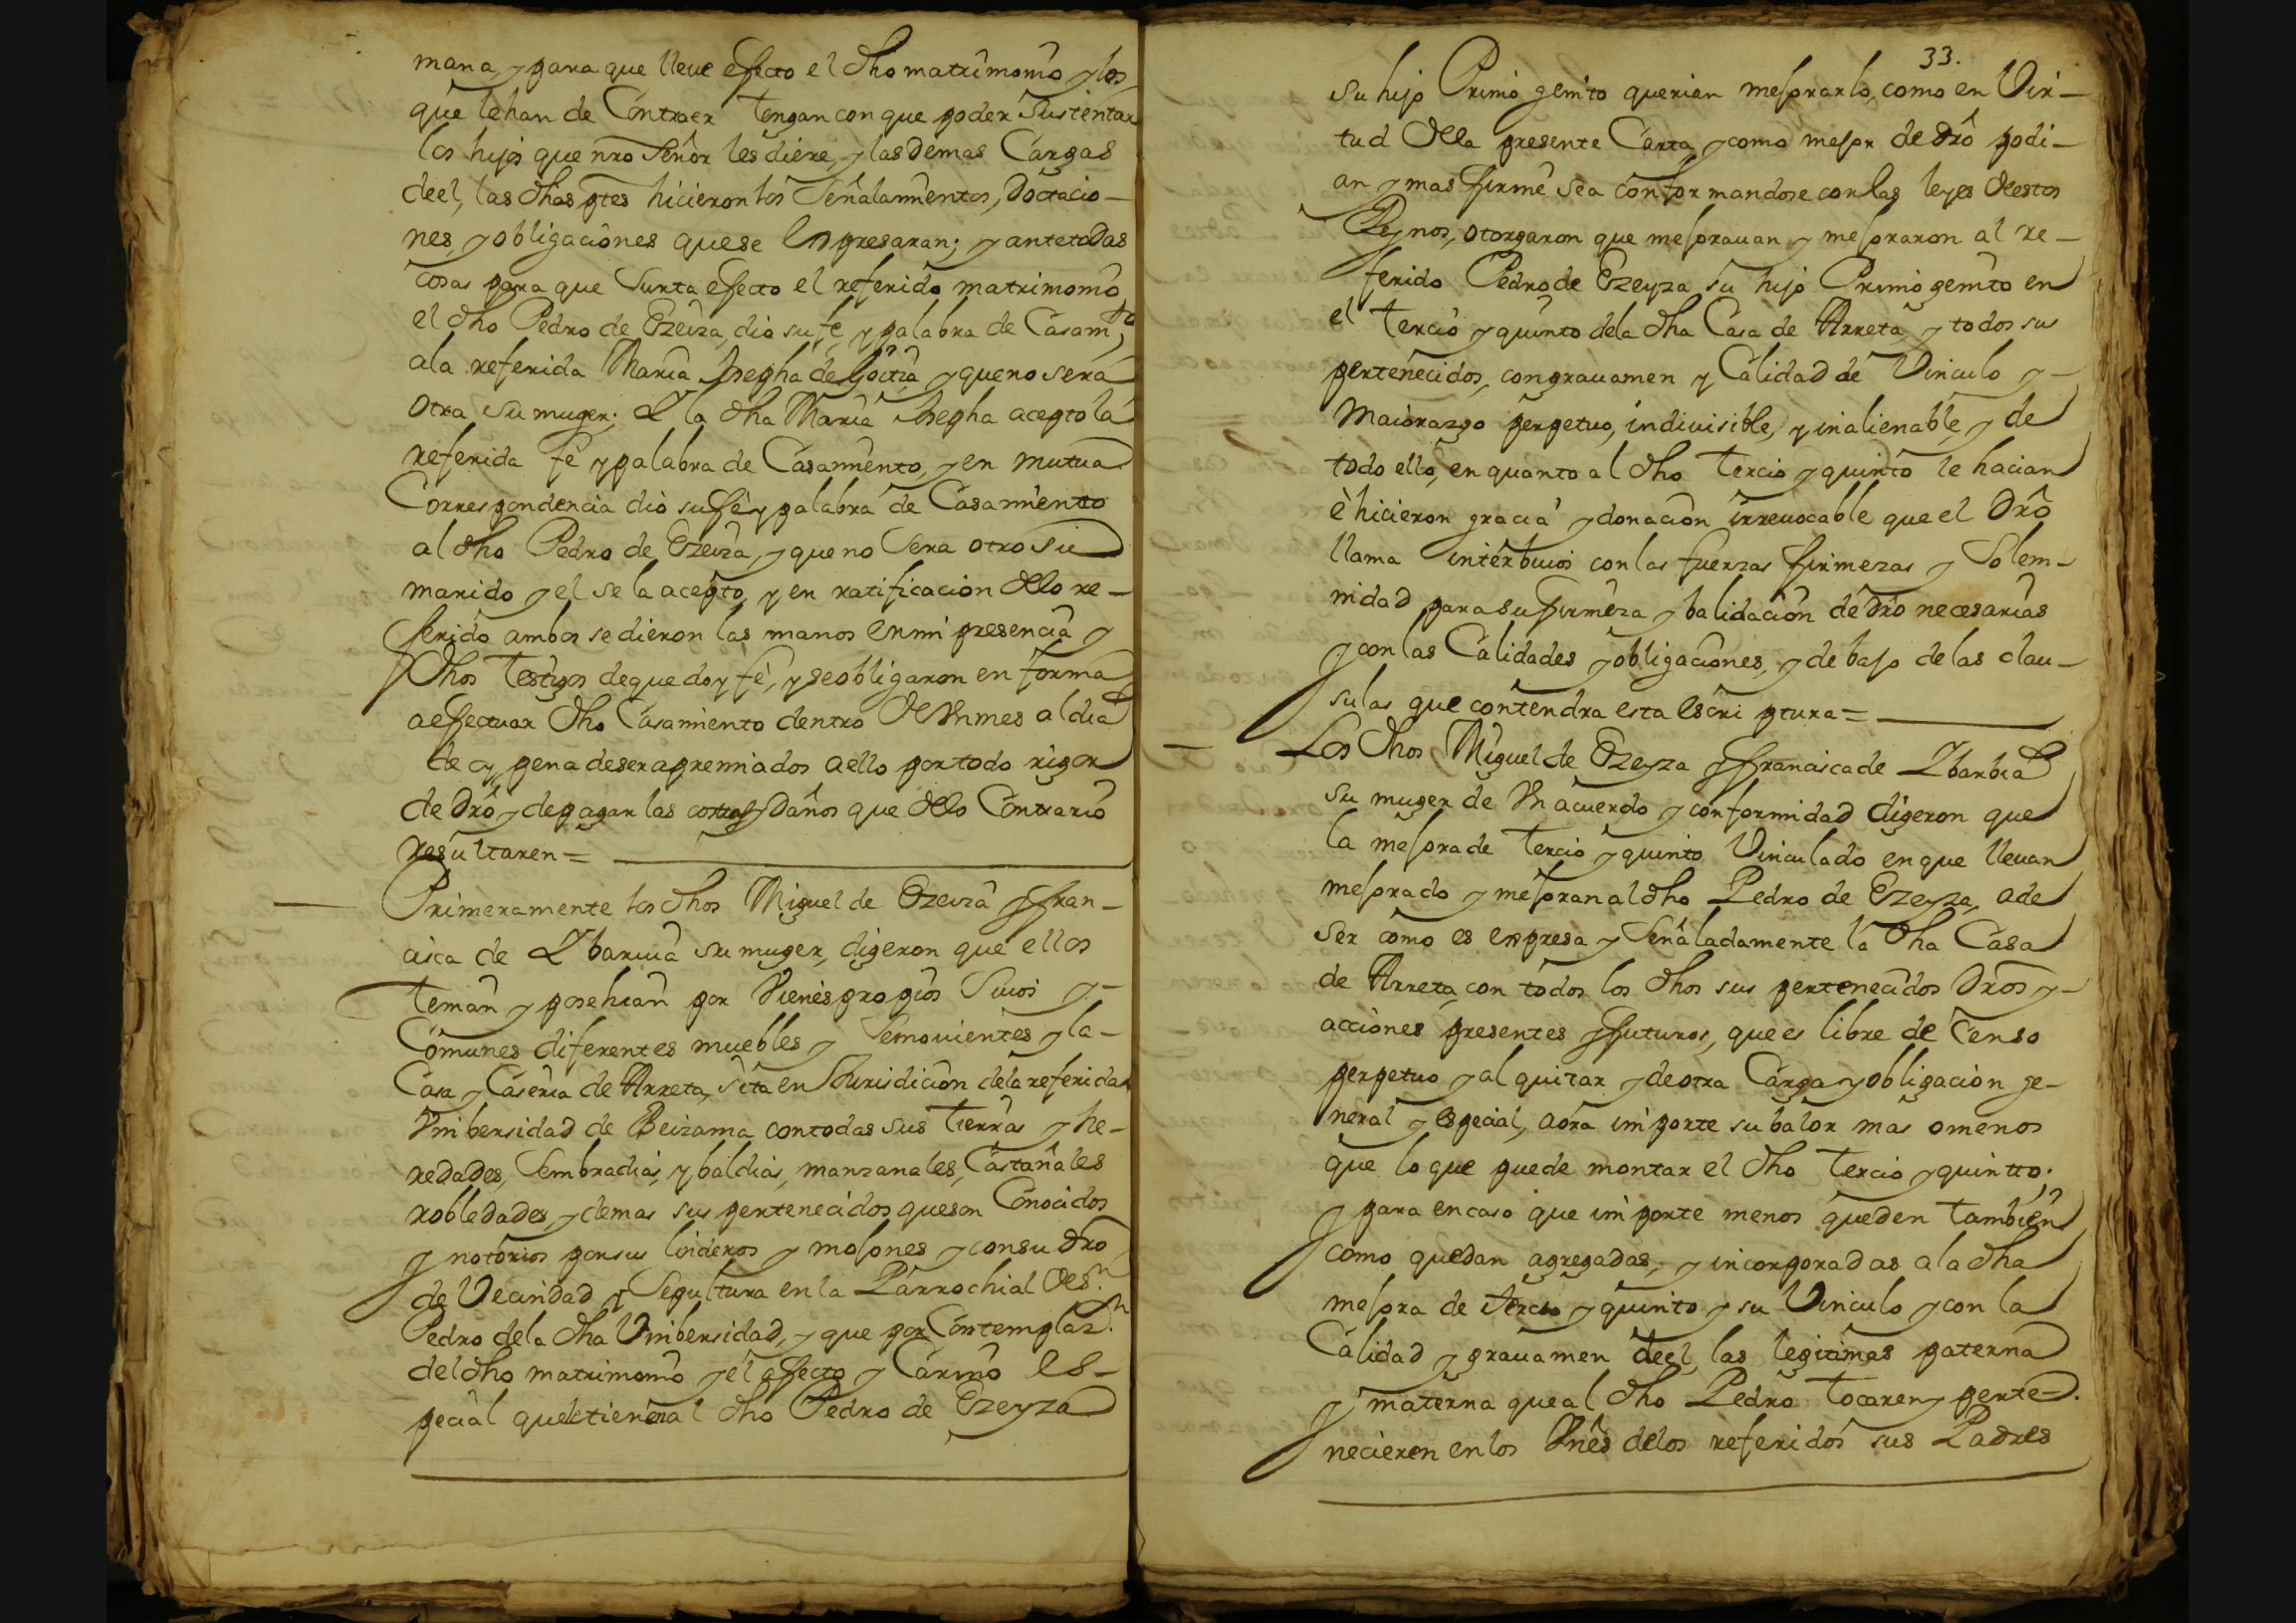 mana, y para que lleve efecto el dho matrimonio y los
que le han de Contraer tengan con que poder Sustentar
los hijos que nro Señor les diere, y las demas Cargas
de el, las dhas ptes hicieron los Señalamientos, Dotacio-
nes, y obligaciones que se Expresaran; y ante todas
cosas para que Surta efecto el referido matrimonio
el dho Pedro de Ezeiza, dio su fe, y palabra de Casam.to,
a la referida Maria Josepha de Goitia y que no sera
otra su muger; I la dha Maria Josepha acepto la
referida fe y palabra de Casamiento, y en mutua
Correspondencia dio su fè y palabra de Casamientto
al dho Pedro de Ezeiza, y que no Sera otro su
marido y el se la acepto, y en ratificacion dello re-
ferido ambos se dieron las manos en mi presencia y
dhos Testigos de que doy fè, y se obligaron en forma
a efectuar dho Casamiento dentro de Un mes al dia
de oy, pena de ser apremiados a ello por todo rigor
de dro y de pagar las costas y Daños que dello Contrario
Resultaren =
Primeramente los dhos Miguel de Ezeiza y fran-
cisca de Ybarvia su muger, digeron que ellos
tenian y posehian por Vienes propios Suios y
Comunes diferentes muebles y Semovientes y la
Casa y Caseria de Arreta, sita en Jurisdicion de la referida
Unibersidad de Beizama con todas sus tierras y he-
redades, Sembradias, y baldias, manzanales, Castañales
robledades, y demas sus pertenecidos que son Conocidos
y notorios por sus linderos y mojones y con su dro
de Vecindad y Sepultura en la Parrochial de S.n
Pedro de la dha Unibersidad, y que por Contemplaz.n
del dho matrimonio y el afecto y Cariño es-
pecial que le tienen al dho Pedro de Ezeyza
33.
su hijo Primo genito querian mejorarlo, como en Vir-
tud de la presente Carta, y como mejor de dro podi-
an y mas firme sea conformandose con las leyes destos
Reynos, otorgaron que mejoravan y mejoraron al re-
ferido Pedro de Ezeyza su hijo Primogenito en
el tercio y quinto de la dha Casa de Arreta, y todos sus
pertenecidos, con gravamen y Calidad de Vinculo y
Maiorazgo perpetuo, indivisible, y inalienable, y de
todo ello, en quanto al dho tercio y quinto le hacian
è hicieron gracia y donacion irrevocable que el Dro
llama intérbivos con las fuerzas firmezas y Solem-
nidad para su firmeza y balidacion de dro necesarias
y con las Calidades y obligaciones, y debajo de las clau-
sulas que contendra esta escriptura =
Los dhos Miguel de Ezeyza y francisca de Ybarbia
su muger de Un acuerdo y conformidad digeron que
la mejora de tercio y quinto Vinculado en que llevan
mejorado y mejoran al dho Pedro de Ezeyza, a de
ser como es expresa y Señaladamente la dha Casa
de Arreta, con todos los dhos sus pertenecidos Dros y
acciones presentes y futuros, que es libre de Censo
perpetuo y al quitar y de otra Carga y obligacion ge-
neral y especial, aora importe su balor mas o menos
que lo que puede montar el dho tercio y quintto;
y para en caso que importe menos queden tambien
como quedan agregadas, y incorporadas a la dha
mejora de tercio y quinto y su Vinculo y con la
Calidad y gravamen de el, las legitimas paterna
y materna que al dho Pedro tocaren y perte-
necieren en los Vnes de los referidos sus Padres